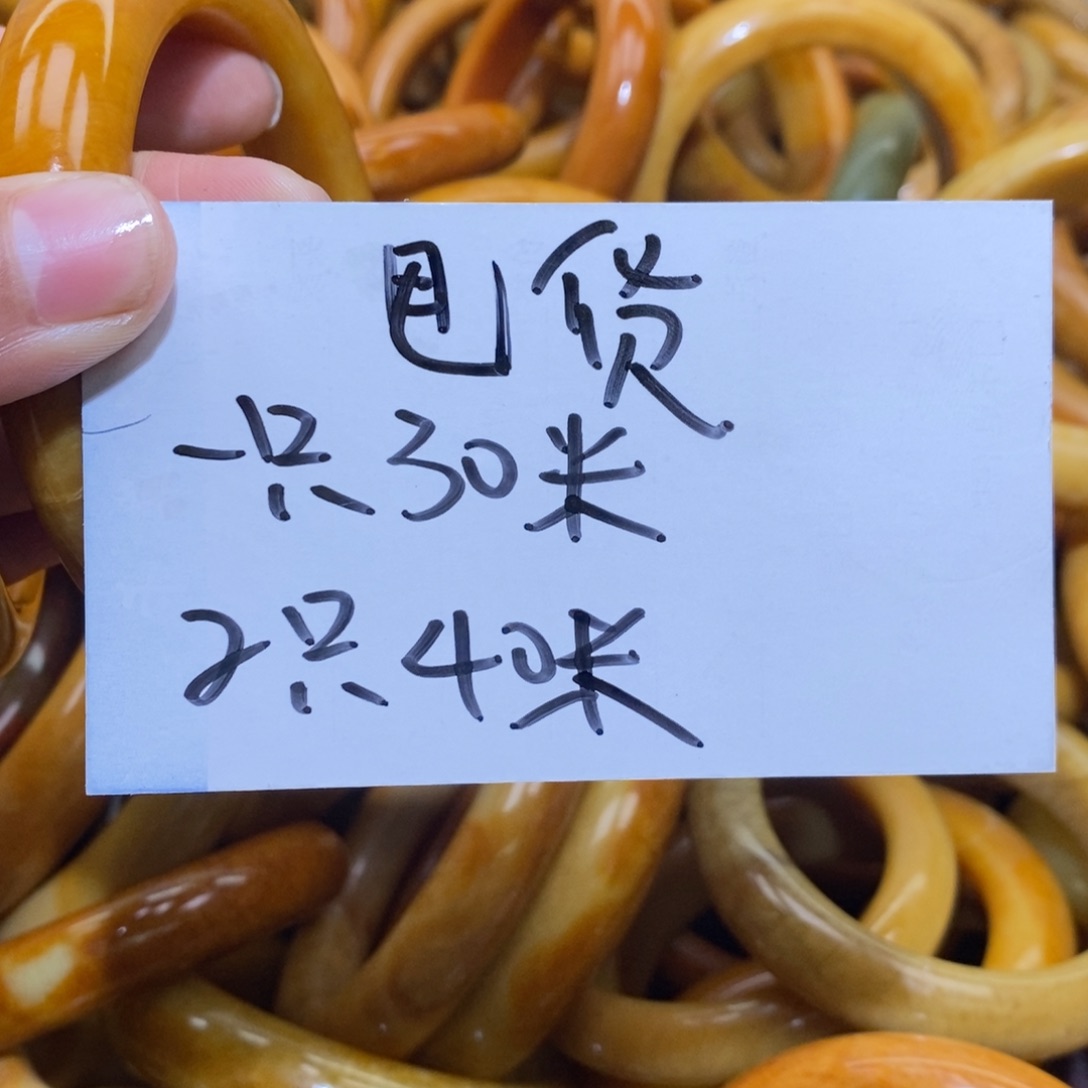 甩货
一只30米
2只40米